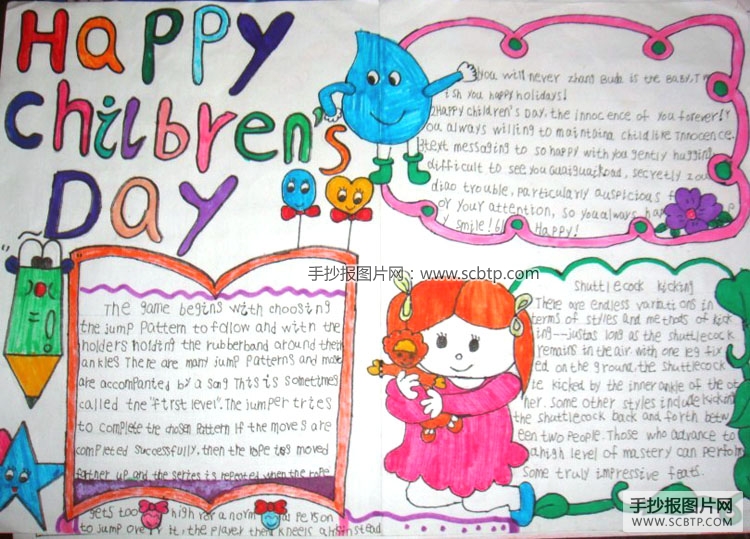 Happy
Chilbren's
Day
You will never zhang Buda is the BABY,I w
ish you happy holidays!
2HAPPY children's DAY. the innocence of you forever! Y
ou always willing to maintaina childlike innocence.
text messaging to so happy with you gently hugging
difficult to see you Guaiguaikoad, secretly zou
diao trouble, particularly auspicious
or your attention, so you always ha
y smile! Happy!
手抄报图片网：www.scbtp.com
The game begins with choosing
the jump Pattern to follow and with the
holders holding the rubberband around their
ankles There are many jump Patterns and most
are accompanied by a song This is sometimes
called the "first level". The jumper tries
to complete the chosen Pattern If the moves are
completed successfully, then the rope is moved
farther up and the series is repeated when the rope
gets too high for a norm person
to jump over it, the player then kneels ahs instead
Shuttlecock kicking
There are endless variations in
terms of styles and methods of kick
ing--justas long as the shuttlecock
remains in the air with one leg fix
ed on the ground. the shuttlecock
te kicked by the inner ankle of the ot
her. Some other styles include kicking
the shuttlecock back and forth betw
een two People. Those who advance to
a high level of mastery can perform
some truly impressive feats.
手抄报图片网
WWW.SCBTP.COM